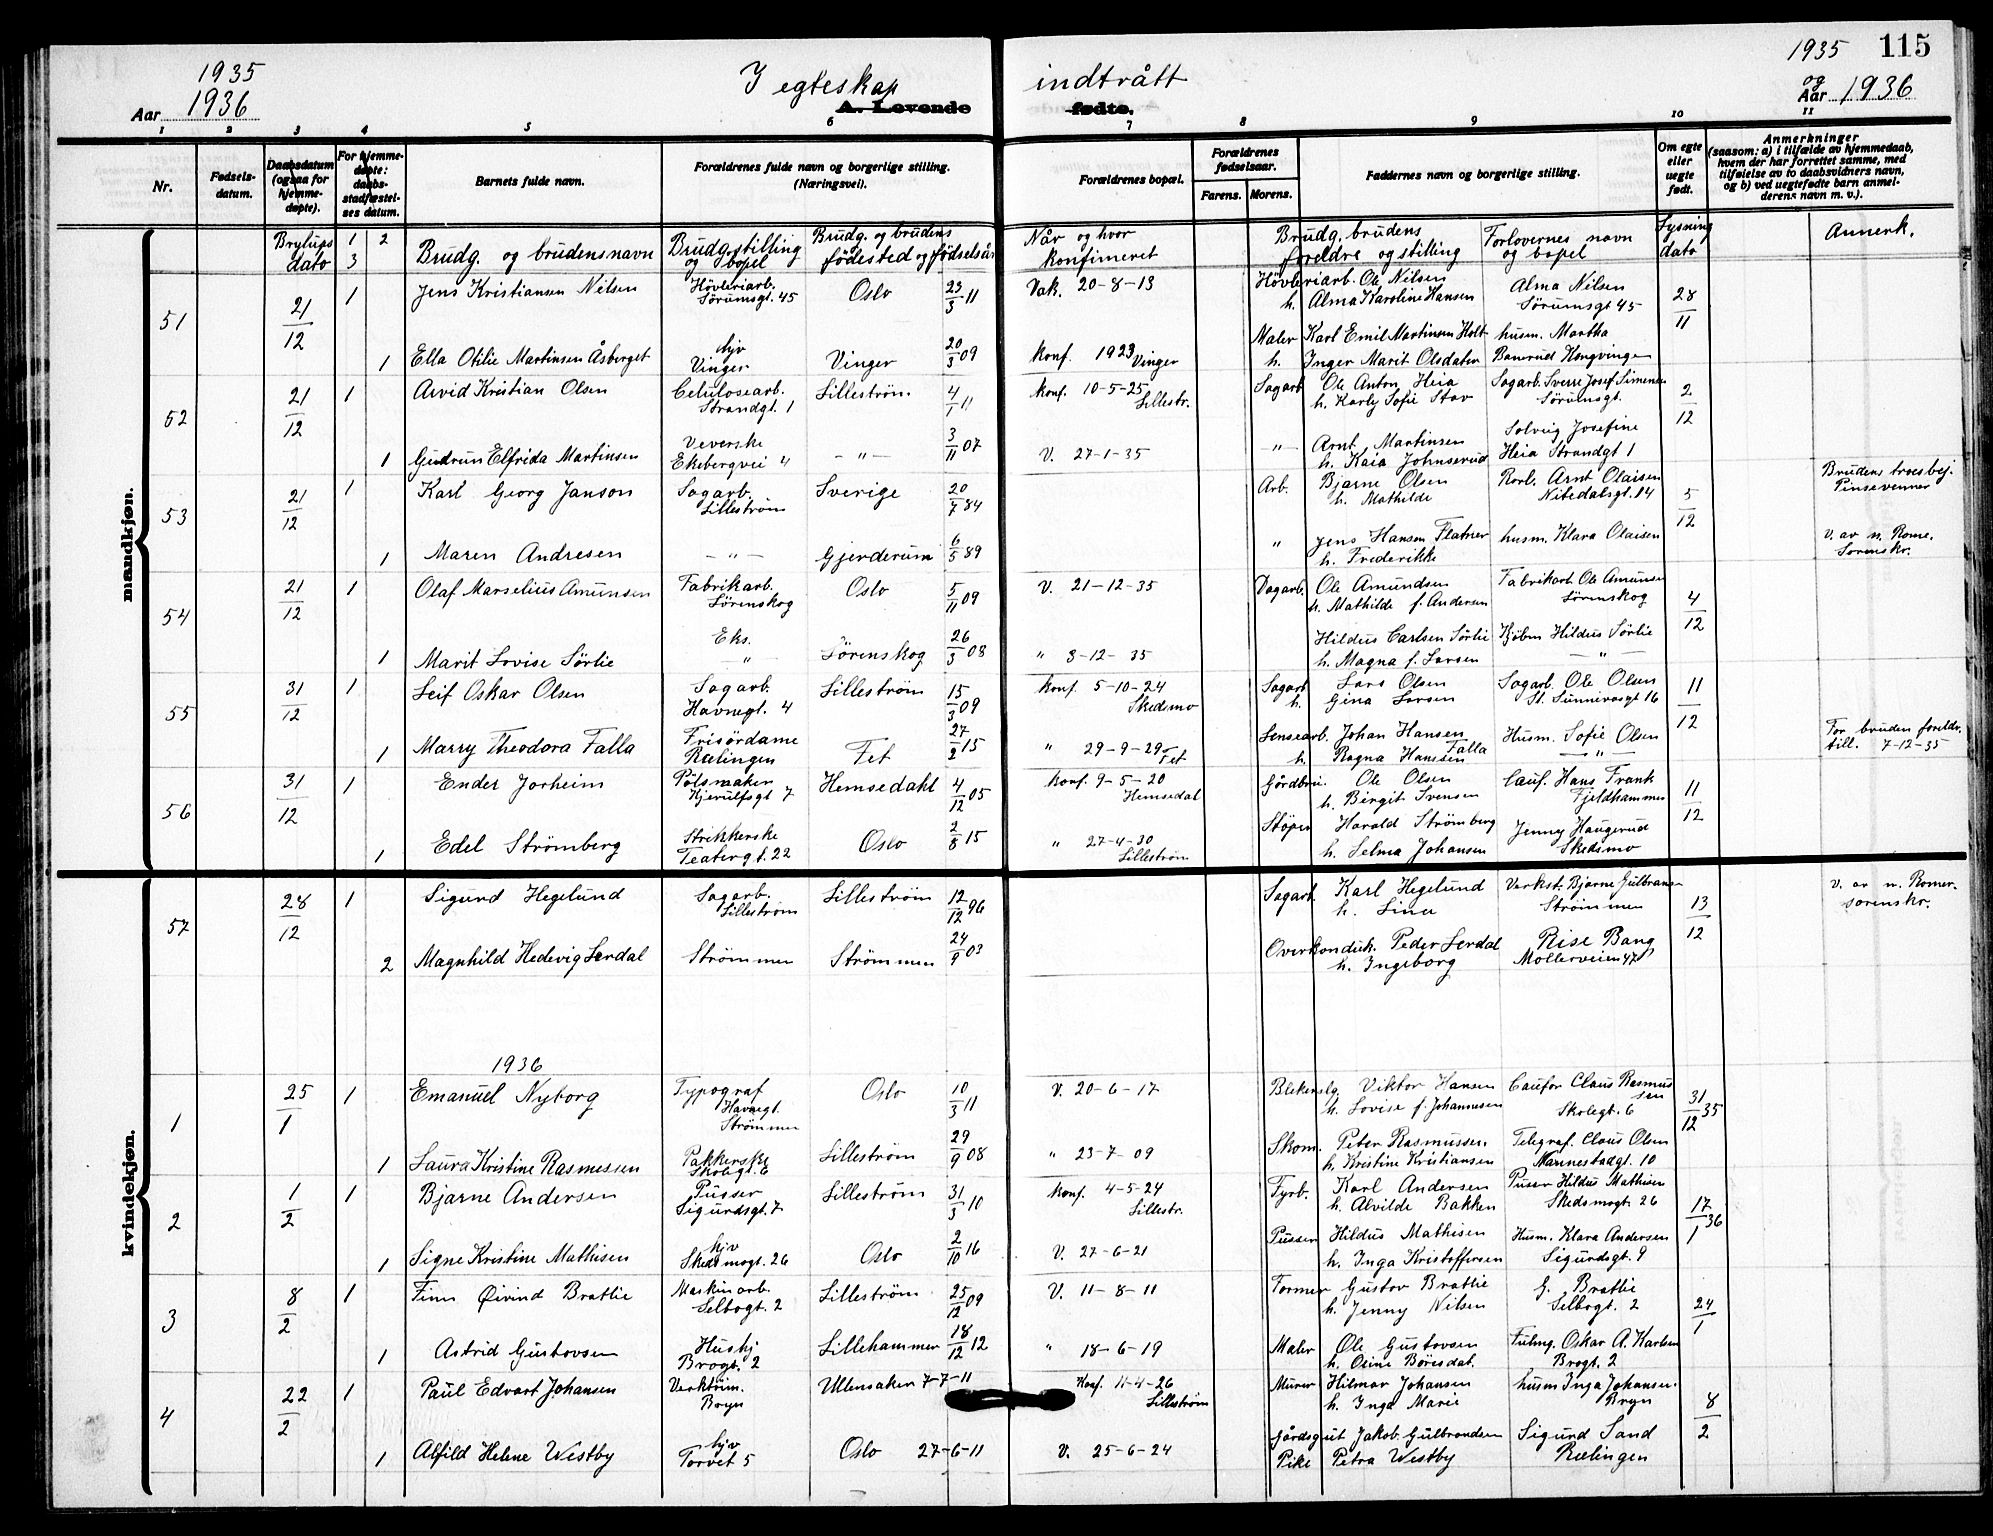 1935
Aar 1936
I egteskap indtrått
A. Levende fødte.
1935 115
og
Aar 1936
1 2 3 4 5 6 7 8 9 10 11
Nr.
Fødsels-
datum.
Daabsdatum
(ogsaa for
hjemme-
døpte).
For hjemme-
døpte:
daabs-
stadfæstel-
ses datum.
Barnets fulde navn.
Forældrenes fulde navn og borgerlige stilling.
(Næringsvei).
Forældrenes bopæl.
Forældrenes
fødselsaar.
Farens. Morens.
Faddernes navn og borgerlige stilling.
Om egte
eller
uegte
født.
Anmerkninger
(saasom: a) i tilfælde av hjemmedaab,
hvem der har forrettet samme, med
tilføielse av to daabsvidners navn,
og b) ved uegtefødte barn anmel-
derens navn m. v.).
Brylups
dato
1 2
3
Brudg. og brudens navn
Brudg. stilling
og bopel
Brudg. og brudens
fødested og fødselsår
Når og hvor
konfimeret
Brudg. brudens
foreldre og stilling
Forlovernes navn
og bopel
Lysning
dato
Anmerk.
mandkjøn.
51 21/12 1 Jens Kristiansen Nilsen Høvleriarb. Sørumsgt. 45 Oslo 23/3 11 Vak. 20-8-13 Høvleriarb. Ole Nilsen h. Alma Karoline Hansen Alma Nilsen Sørumsgt 45 28/11
1 Ella Otilie Martinsen Åsberget hjv Vinger Vinger 20/3 09 Konf. 1923 Vinger Maler Karl Emil Martinsen Holt h. Inger Marit Olsdater husm. Martha Banerud Kongvinger
52 21/12 1 Arvid Kristian Olsen Celulosearb. Strandgt. 1 Lillestrøm 4/1 11 Konf. 10-5-25 Lillestr. Sagarb Ole Anton Heia h. Karly Sofie Stav Sagarb. Sverre Josef Simensen Sørumsgt. 2/12
1 Gudrun Elfrida Martinsen Veverske Ekebergvei 4 — " — 3/11 07 V. 27-1-35 — " — Arnt Martinsen h. Kaia Johnserud Solveig Josefine Heia Strandgt 1
53 21/12 1 Karl Georg Janson Sagarb. Lillestrøm Sverige 20/7 84 Arb. Bjarne Olsen h. Mathilde Rorl. Arnt Olaisen Nitedalsgt. 14 5/12 Brudens troesbej. Pinsevenner
1 Maren Andresen — " — Gjerderum 6/5 89 " Jens Hansen Flatner h. Frederikke husm. Klara Olaisen V. av N. Rome. Sorenskr.
54 21/12 1 Olaf Marselius Amunsen Fabrikarb. Sørenskog Oslo 5/11 09 V. 21-12-35 Dagarb. Ole Amundsen h. Mathilde f. Andersen Fabrikarb. Ole Amunsen Sørenskog 4/12
1 Marit Lovise Sørlie Eks. — " — Sørenskog 26/3 08 " 8-12-35 Hildus Carlsen Sørlie h. Magna f. Larsen Kjøbm Hildus Sørlie — " —
55 31/12 1 Leif Oskar Olsen Sagarb. Havnegt. 4 Lillestrøm 15/3 09 Konf. 5-10-24 Skedsmo Sagarb Lars Olsen h. Gina Larsen Sagarb. Ole Olsen St. Sunnivasgt 16 11/12
1 Marry Theodora Falla Frisørdame Rælingen Fet 27/2 15 " 29-9-29 Fet Lensearb. Johan Hansen h. Ragna Hansen Falla Husm. Sofie Olsen — " — For bruden foreldr. till. 7-12-35
56 31/12 1 Ender Jorheim Pølsmaker Kjerulfsgt 7 Hemsedahl 4/12 05 Konf. 9-5-20 Hemsedal Gårdbru. Ole Olsen h. Birgit Svensen Cauf. Hans Frank Fjeldhammer 11/12
1 Edel Strømberg Strikkerske Teatergt. 22 Oslo 2/8 15 " 27-4-30 Lillestrøm Støper Harald Strømberg h. Selma Johansen Jenny Haugerud Skedsmo
kvindekjøn.
57 28/12 1 Sigurd Hegelund Sagarb. Lillestrøm Lillestrøm 12/12 96 Sagarb. Karl Hegelund h. Lina Verkst. Bjarne Gulbrans- Strømmen 13/12 V. av N. Romer. sorenskr.
2 Magnhild Hedevig Lerdal Strømmen Strømmen 24/9 03 Overkonduk. Peder Lerdal h. Ingeborg Rise Bang Møllerveien 47
1936
1 25/1 1 Emanuel Nyborg Typograf Havnegt. Strømmen Oslo 10/3 11 V. 20-6-17 Blekenslg. Viktor Hansen h. Lovise f. Johannesen Caufør Claus Rasmussen Skolegt. 6 31/12 35
1 Laura Kristine Rasmussen Pakkerske Skolegt. 6 Lillestrøm 29/9 08 " 23-7-09 Skom. Peter Rasmussen h. Kristine Kristiansen Telegraf. Claus Olsen Marinestadgt. 10
2 1/2 1 Bjarne Andersen Pusser Sigurdsgt. 7 Lillestrøm 31/3 10 Konf. 4-5-24 Lillestr. Fyrb. Karl Andersen h. Alvilde Bakken Pusser Hildus Mathisen Skedsmogt. 26 17/1 36
1 Signe Kristine Mathisen hjv Skedsmogt. 26 Oslo 2/10 16 V. 27-6-21 Pusser Hildus Mathisen h. Inga Kristoffersen Husm. Klara Andersen Sigurdsgt. 9
3 8/2 1 Finn Øivind Bratlie Maskinarb. Selbogt. 2 Lillestrøm 25/12 09 V. 11-8-11 Former Gustav Bratlie h. Jenny Nilsen G. Bratlie Selbogt. 2 24/1
1 Astrid Gustovsen Hushj Brogt. 2 Lillehammer 18/12 12 " 18-6-19 Maler Ole Gustovsen h. Oline Børesdat. Fulmg. Oskar A. Karlsen Brogt. 2
4 22/2 1 Paul Edvart Johansen Verktøim. Børyn Ullensaker 7-7-11 Konf. 11-4-26 Lillestrøm Murer Hilmar Johansen h. Inga Marie husm Inga Johansen. Bryn 8/2
1 Alfild Helene Westby hjv Torvet 5 Oslo 27-6-11 V. 25-6-24 Gårdsgut Jakob Gulbrandsen Pike Petra Westby Sigurd Sand Rælingen